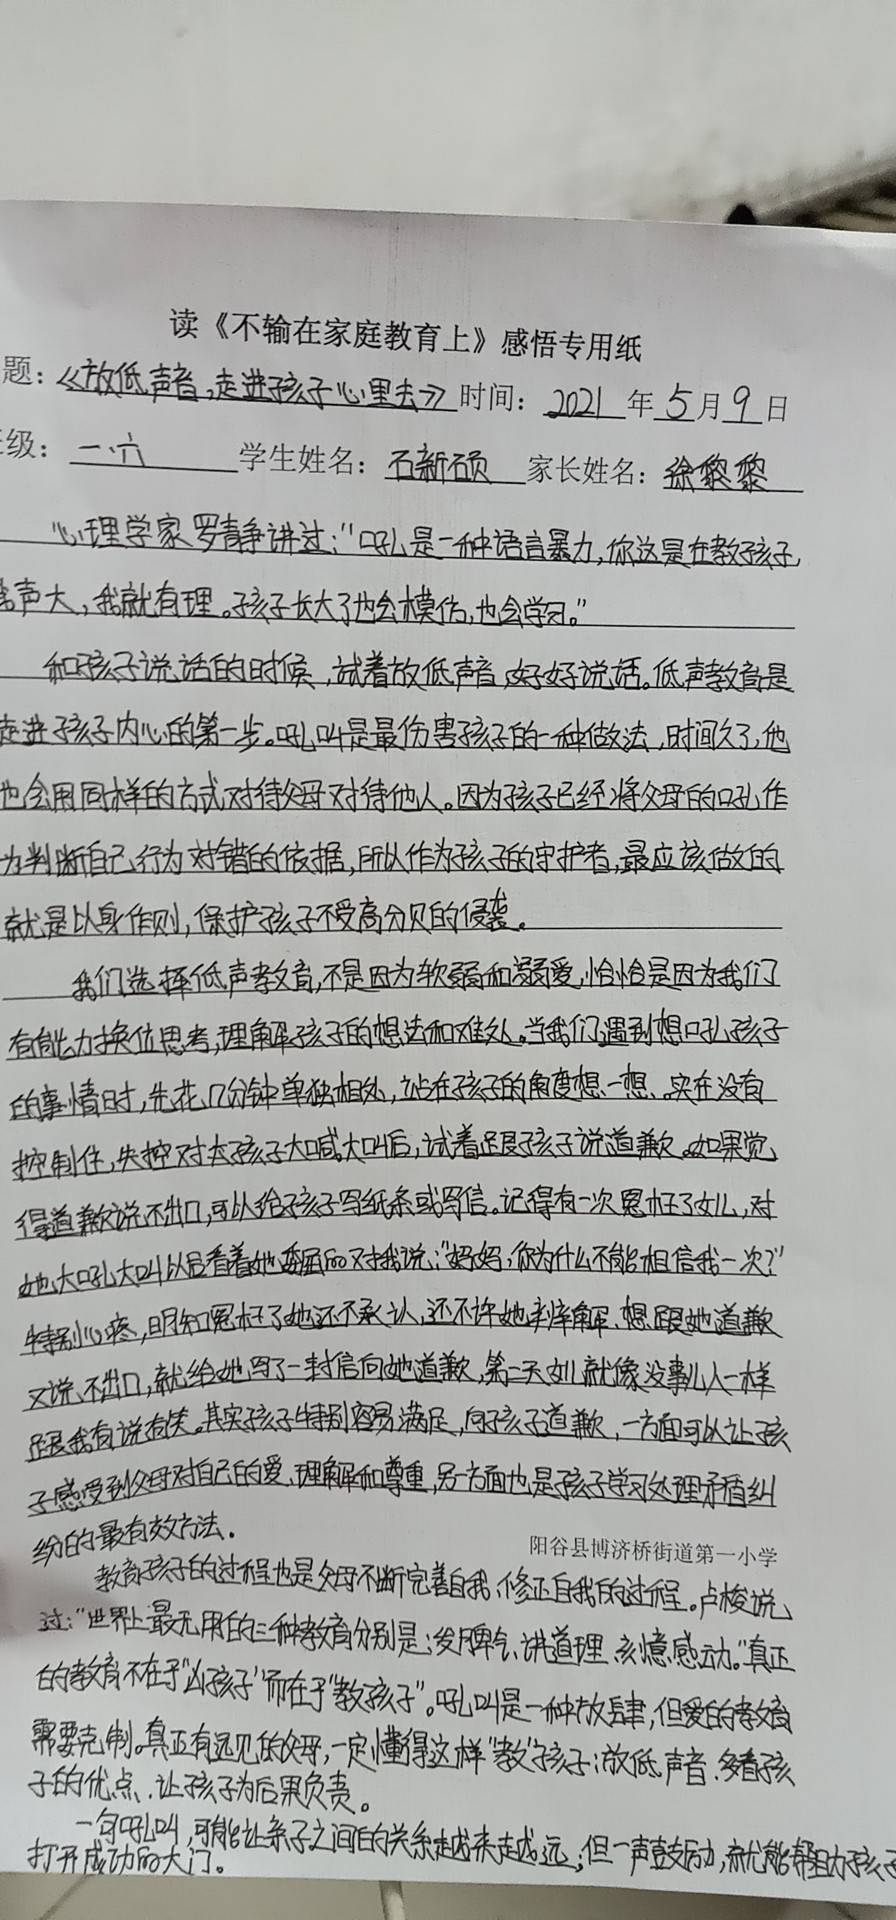 读《不输在家庭教育上》感悟专用纸
题：《放低声音，走进孩子心里去》时间：2021年5月9日
级：一.六 学生姓名：石新硕 家长姓名：徐黎黎
心理学家罗静讲过："吼是一种语言暴力，你这是在教孩子，
声大，我就有理。孩子长大了也会模仿，也会学习。"
和孩子说话的时候，试着放低声音，好好说话。低声教育是
走进孩子内心的第一步。吼叫是最伤害孩子的一种做法，时间久了，他
也会用同样的方式对待父母对待他人。因为孩子已经将父母的吼作
为判断自己行为对错的依据，所以作为孩子的守护者，最应该做的
就是以身作则，保护孩子不受高分贝的侵袭。
我们选择低声教育，不是因为软弱和溺爱，恰恰是因为我们
有能力换位思考，理解孩子的想法和难处。当我们遇到想吼孩子
的事情时，先花几分钟单独相处，站在孩子的角度想一想、。实在没有
控制住，失控对孩子大喊大叫后，试着跟孩子说道歉。如果觉
得道歉说不出口，可以给孩子写纸条或写信。记得有一次冤枉了女儿，对
她大吼大叫以后看着她委屈的对我说："妈妈，你为什么不能相信我一次？"
特别心疼，明知冤枉了她还不承认，还不许她辩解、想跟她道歉
又说不出口，就给她写了一封信向她道歉，第二天女儿就像没事儿人一样
跟我有说有笑。其实孩子特别容易满足，向孩子道歉，一方面可以让孩
子感受到父母对自己的爱、理解和尊重，另一方面也是孩子学习处理矛盾纠
纷的最有效方法。
阳谷县博济桥街道第一小学
教育孩子的过程也是父母不断完善自我、修正自我的过程。卢梭说
过："世界上最无用的三种教育分别是：发脾气、讲道理、刻意感动。"真正
的教育不在于"凶孩子"而在于"教孩子"。吼叫是一种放肆，但爱的教育
需要克制。真正有远见的父母，一定懂得这样"教"孩子：放低声音、多看孩
子的优点、让孩子为后果负责。
一句吼叫，可能让亲子之间的关系越来越远；但一声鼓励，就能帮助孩子
打开成功的大门。